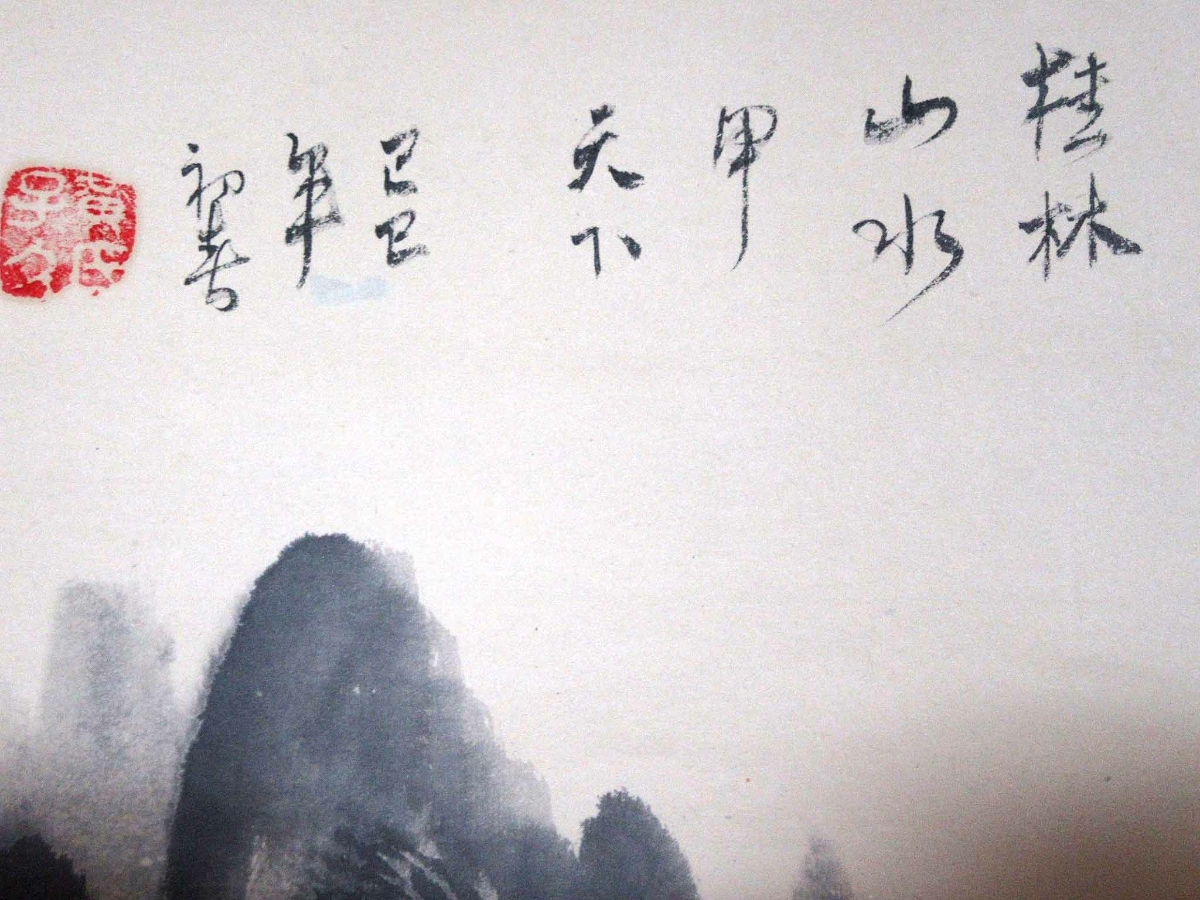 桂林
山水
甲
天下
己巳
年
初春